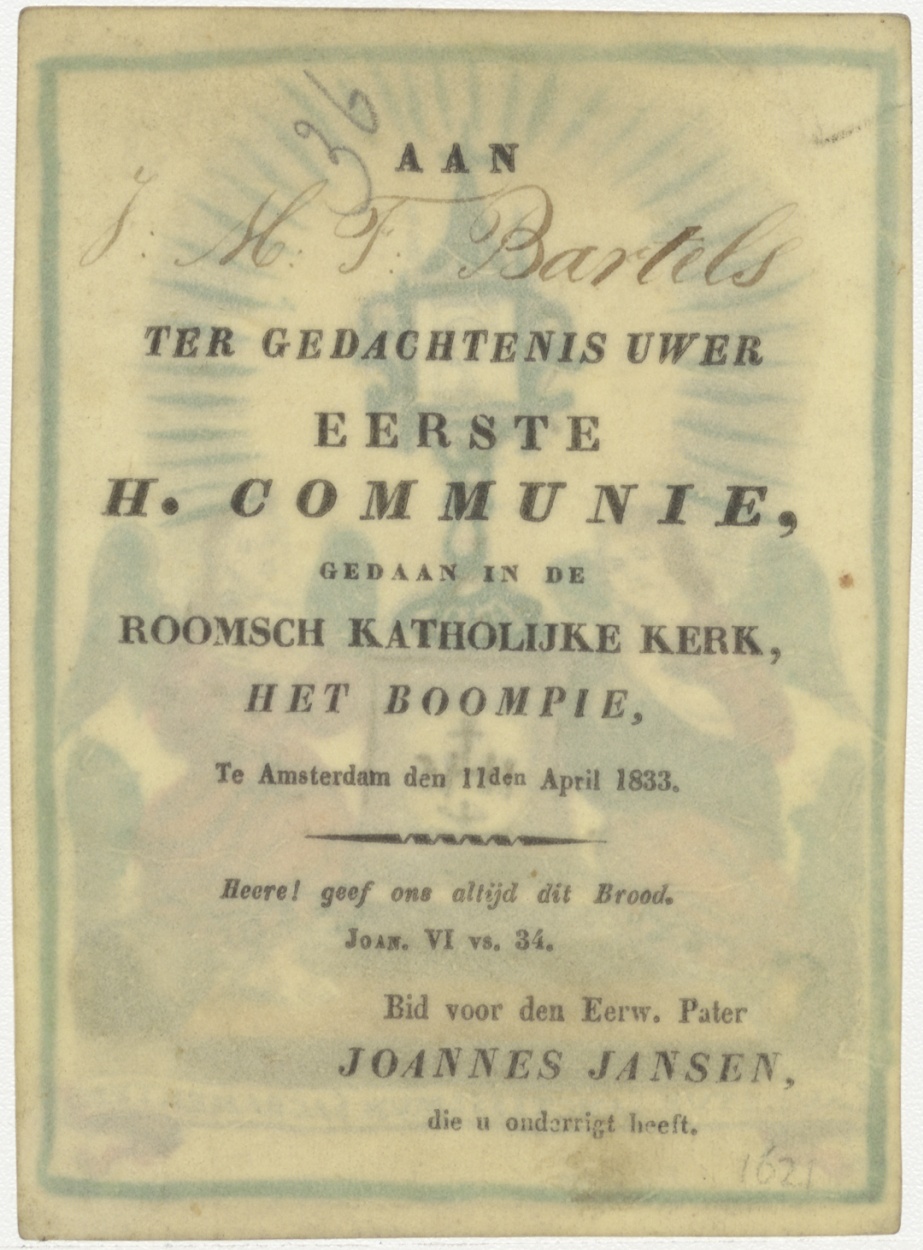 36
AAN
J. M. F. Bartels
TER GEDACHTENIS UWER
EERSTE
H. COMMUNIE,
GEDAAN IN DE
ROOMSCH KATHOLIJKE KERK,
HET BOOMPIE,
Te Amsterdam den 11den April 1833.
Heere! geef ons altijd dit Brood.
JOAN. VI vs. 34.
Bid voor den Eerw. Pater
JOANNES JANSEN,
die u onderrigt heeft.
1621